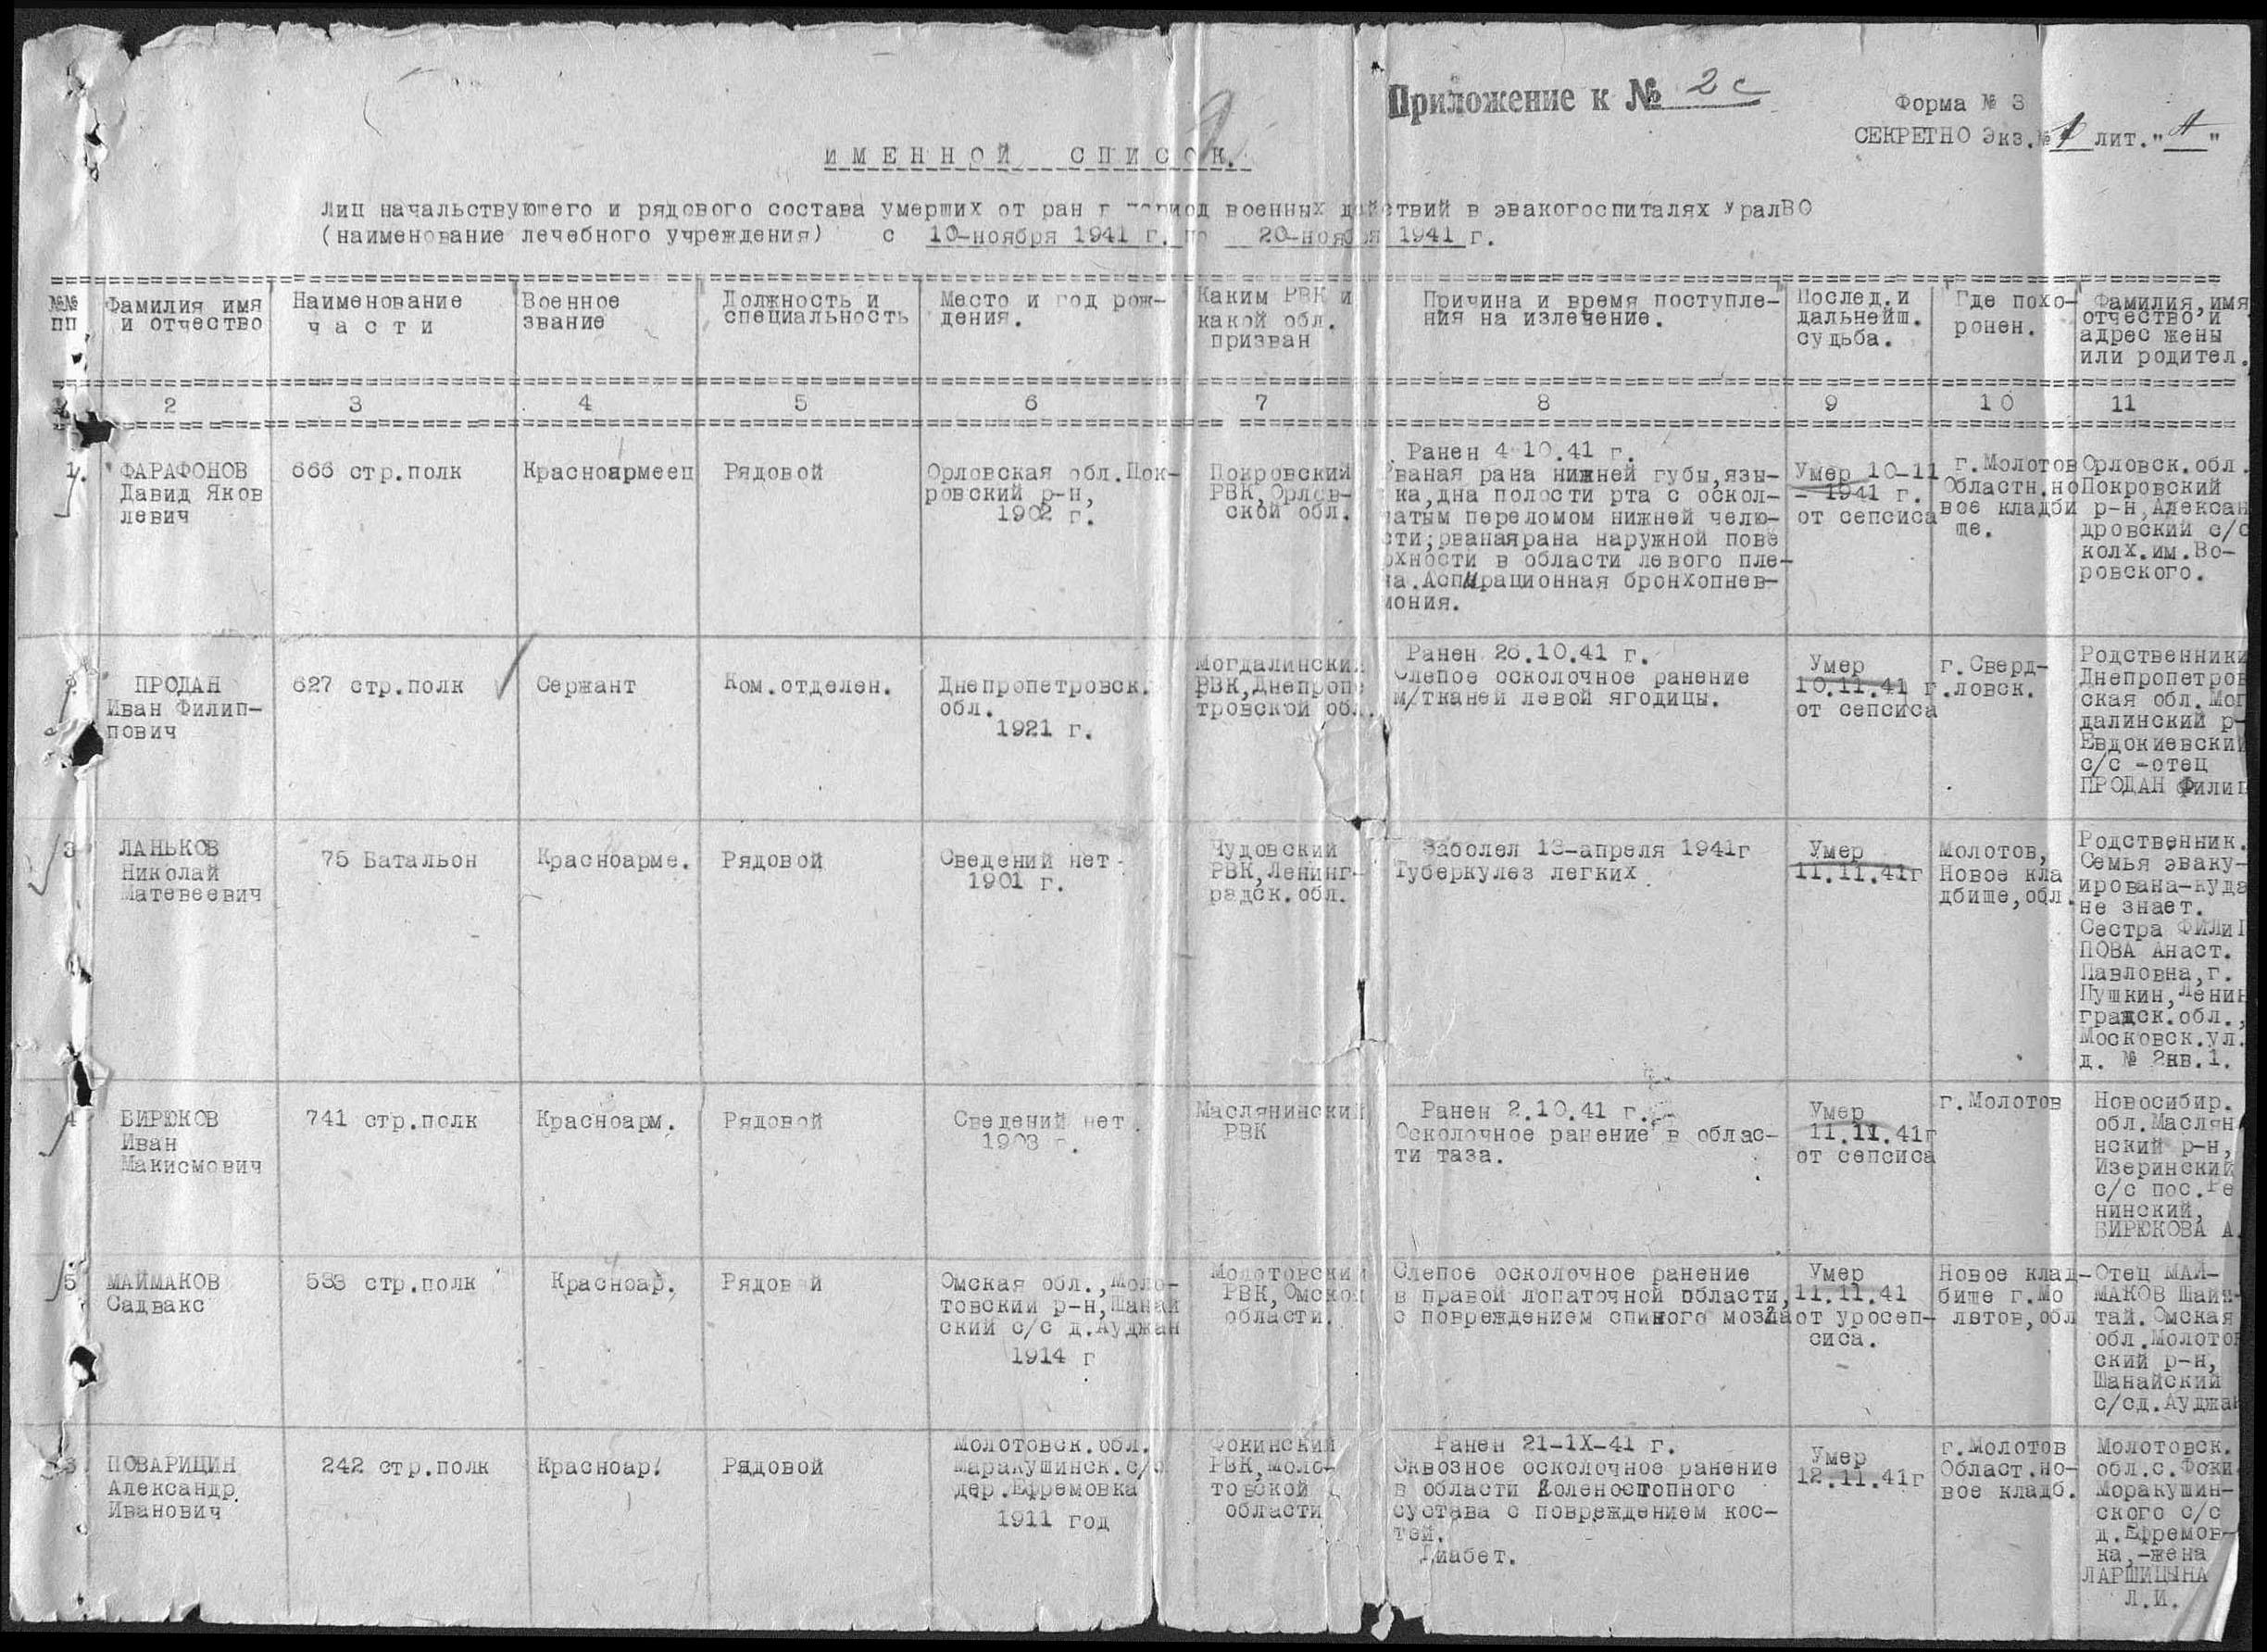 Приложение к № 2с
Форма № 3
СЕКРЕТНО Экз.№ 1 лит."А"
ИМЕННОЙ СПИСОК.
Лиц начальствующего и рядового состава умерших от ран в период военных действий в эвакогоспиталях УралВО
(наименование лечебного учреждения) с 10-ноября 1941 г. по 20-ноября 1941 г.
№№ пп
Фамилия имя
и отчество
Наименование
части
Военное
звание
Должность и
специальность
Место и год рож-
дения.
Каким РВК и
какой обл.
призван
Причина и время поступле-
ния на излечение.
Послед. и
дальнейш.
судьба.
Где похо-
ронен.
Фамилия, имя
отчество и
адрес жены
или родител.
2 3 4 5 6 7 8 9 10 11
1.
ФАРАФОНОВ
Давид Яков
левич
666 стр.полк
Красноармеец
Рядовой
Орловская обл.Пок-
ровский р-н,
1902 г.
Покровский
РВК, Орлов-
ской обл.
Ранен 4-10.41 г.
Рваная рана нижней губы,язы-
ка,дна полости рта с оскол-
чатым переломом нижней челю-
сти;рванаярана наружной пове
рхности в области левого пле-
ча.Аспирационная бронхопнев-
мония.
Умер 10-11
- 1941 г.
от сепсиса
г.Молотов
Областн.но
вое кладби
ще.
Орловск.обл.
Покровский
р-н,Алексан
дровский с/с
колх.им.Во-
ровского.
2.
ПРОДАН
Иван Филип-
пович
627 стр.полк
Сержант
Ком.отделен.
Днепропетровск.
обл.
1921 г.
Могдалински
РВК,Днепропе
тровской об.
Ранен 26.10.41 г.
Слепое осколочное ранение
м/тканей левой ягодицы.
Умер
10.11.41 г.
от сепсиса
г.Сверд-
ловск.
Родственники
Днепропетров
ская обл.Мог
далинский р-
Евдокиевский
с/с -отец
ПРОДАН Филип
3
ЛАНЬКОВ
Николай
Матевеевич
75 Батальон
Красноарме.
Рядовой
Сведений нет
1901 г.
Чудовский
РВК,Ленинг-
радск.обл.
Заболел 13-апреля 1941г
Туберкулез легких
Умер
11.11.41г
Молотов,
Новое кла
дбище,обл.
Родственник.
Семья эваку-
ирована-куда
не знает.
Сестра ФИЛИП
ПОВА Анаст.
Павловна,г.
Пушкин,Ленин
градск.обл.,
Московск.ул.
д. № 2кв.1.
4
БИРЮКОВ
Иван
Макисмович
741 стр.полк
Красноарм.
Рядовой
Сведений нет.
1903 г.
Маслянинский
РВК
Ранен 2.10.41 г.
Осколочное ранение в облас-
ти таза.
Умер
11.11.41г
от сепсиса
г.Молотов
Новосибир.
обл.Маслян
нский р-н,
Изеринский
с/с пос.Ре
нинский,
БИРЮКОВА А.
5
МАЙМАКОВ
Садвакс
533 стр.полк
Красноар.
Рядовой
Омская обл.,Моло-
товский р-н,Шанай
ский с/с д.Ауджан
1914 г
Молотовский
РВК,Омской
области.
Слепое осколочное ранение
в правой лопаточной области,
с повреждением спиного мозга
Умер
11.11.41
от уросеп-
сиса.
Новое клад-
бище г.Мо
лотов,обл
Отец МАЙ-
МАКОВ Шайн-
тай. Омская
обл.Молотов
ский р-н,
Шанайский
с/сд.Ауджан
6
ПОВАРИЦИН
Александр
Иванович
242 стр.полк
Красноар.
Рядовой
Молотовск.обл.
Маракушинск.с/с
дер.Ефремовка
1911 год
Фокинский
РВК,Моло-
товской
области
Ранен 21-IX-41 г.
Сквозное осколочное ранение
в области Коленостопного
сустава с повреждением кос-
тей.
Диабет.
Умер
12.11.41г
г.Молотов
Област.но-
вое кладб.
Молотовск.
обл.с.Фоки
Моракушин-
ского с/с
д.Ефремов-
ка,-жена
ЛАРШИЦЫНА
Л.И.